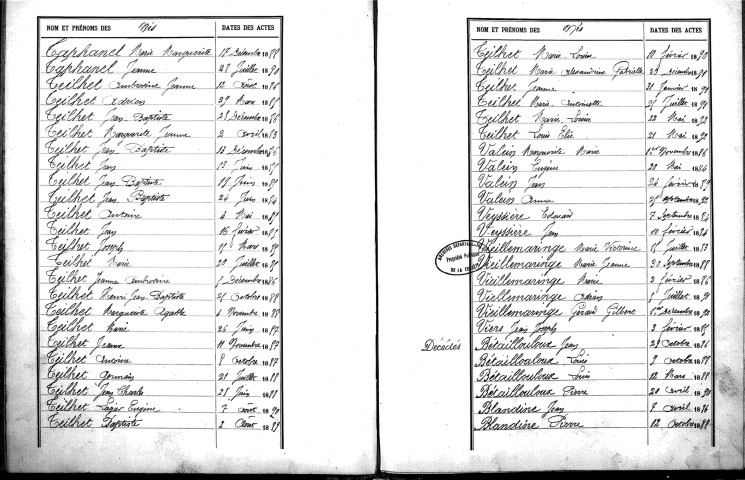 NOM ET PRÉNOMS DES Nés DATES DES ACTES
Taphanel Marie Marguerite 17 Décembre 18
Taphanel Jeanne 28 Juillet 1890
Teilhet Ambroisine Jeanne 12 Août 1886
Teilhet Adrien 29 Mars 18
Teilhet Jean Baptiste 28 Décembre 1886
Teilhet Marguerite Jeanne 2 Avril 1883
Teilhet Jean Baptiste 12 Décembre 1886
Teilhet Jean 13 Juin 18
Teilhet Jean Baptiste 19 Juin 18
Teilhet Jean Baptiste 24 Juin 1884
Teilhet Antoine 4 Mai 18
Teilhet Jean 16 février 18
Teilhet Joseph Mars 18
Teilhet Marie 20 Juillet 18
Teilhet Jeanne Ambroisine Décembre 1886
Teilhet Henri Jean Baptiste Octobre 1888
Teilhet Marguerite Agathe 4 Novembre 1888
Teilhet Marie 26 Juin 1887
Teilhet Jeanne 11 Novembre 1887
Teilhet Antoine 8 Octobre 1887
Teilhet Germain 21 Juillet 1888
Teilhet Jean Charles 28 Juin 18
Teilhet Eugène 7 Août 1890
Teilhet Baptiste 2 Août 18
NOM ET PRÉNOMS DES Nés DATES DES ACTES
Teilhet Marie Louise 10 février 1890
Teilhet Maria Alexandrine 29 Décembre 1890
Teilhet Jeanne 21 Janvier 1891
Teilhet Marie Antoinette Juillet 1891
Teilhet Marie Louise 22 Mai 18
Teilhet Louis Elie 21 Mai 18
Valeix Marguerite Marie 1er Novembre 1886
Valeix Eugène 20 Mai 1884
Valeix Jean 24 février 1889
Valeix Anna Septembre 18
Veyssière Edouard 7 Septembre 1884
Veyssière Jean 10 février 1884
Vieillemaringe Marie Victorine Juillet 1883
Vieillemaringe Marie Jeanne 30 Septembre 1888
Vieillemaringe Marie 3 février 1886
Vieillemaringe Adrien Juillet 18
Vieillemaringe Gérard Gilbert 1er Décembre 18
Viers Jean Joseph 2 février 18
ARCHIVES DÉPARTEMENTALES
Propriété Publique
DE LA CORRÈZE
Décédés Bétaillouloux Jean 28 Octobre 1886
Bétaillouloux Louis 9 Octobre 1888
Bétaillouloux Louis 12 Mars 1888
Bétaillouloux Pierre 20 Avril 1890
Blandine Jean 7 Avril 1886
Blandine Pierre 12 Octobre 1888